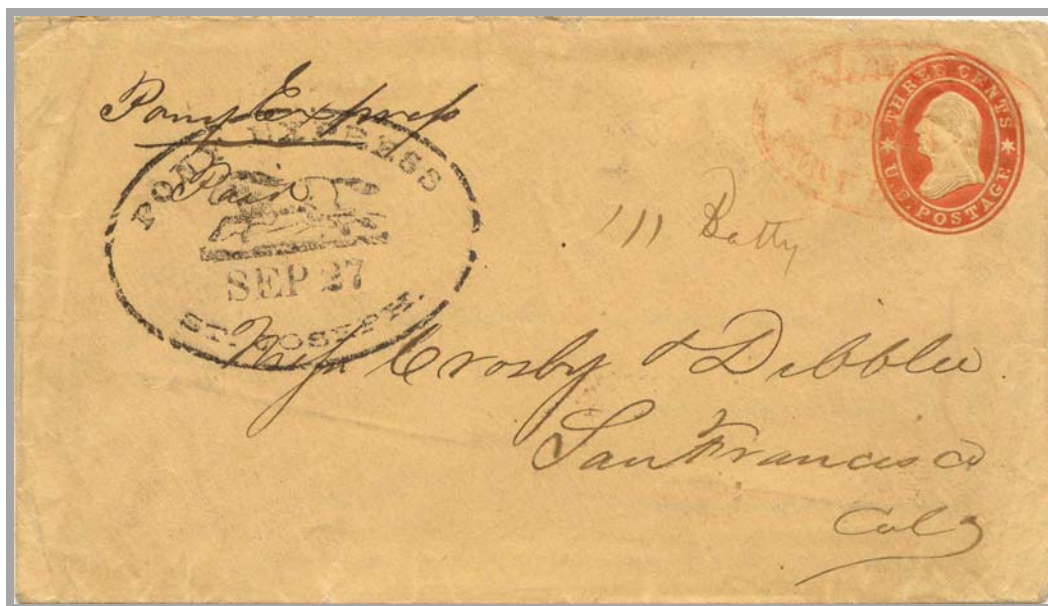 Pony Express
Paid
PONY EXPRESS
SEP 27
ST. JOSEPH.
THREE CENTS
U.S. POSTAGE
111 Batty
Crosby & Dibblee
San Francisco
Cal